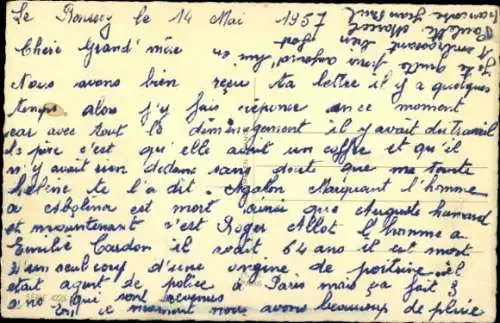 Le Ronssoy le 14 Mai 1957
Chère Grand' mère
Nous avons bien reçu ta lettre il y a quelques
temps alors j'y fais réponse en ce moment
car avec tout le déménagement il y avait du travail
c'est qu'elle avait un coffre et qu'il
n'y avait rien dedans sans doute que ma tante
Hélène te l'a dit. Marquant l'homme
a est mort ainsi que Auguste
et maintenant c'est Roger Allot l'homme a
Emilie Cardon il avait 64 ans il est mort
d'un seul coup d'une angine de poitrine il
était agent de police à Paris mais ça fait 3
ans qui sont revenus
En ce moment nous avons beaucoup de pluie
Je te quitte
en t'embrassant bien fort
Paulette Marcel
Jean Paul